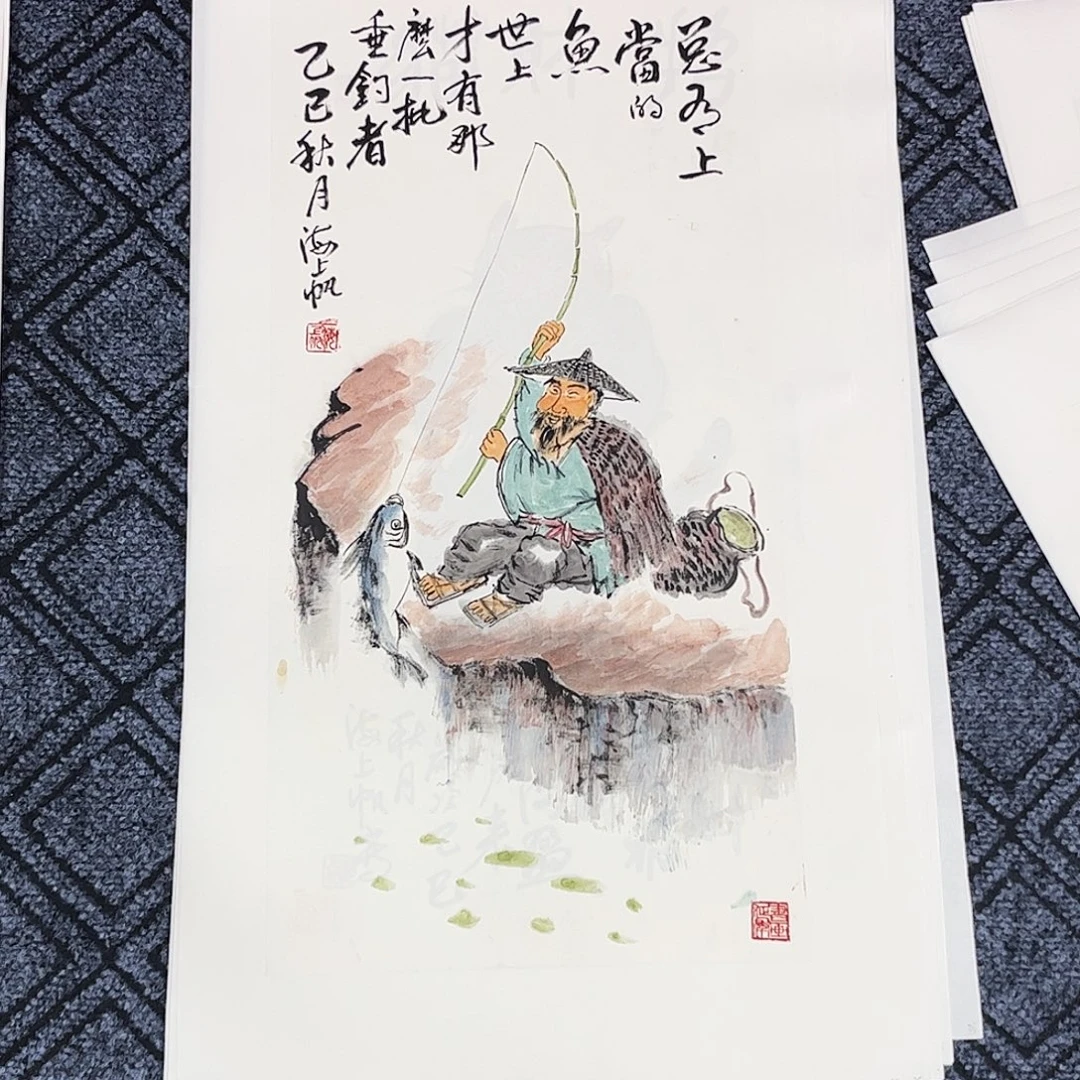 总有上
當的
魚
世上
才有那
麽一批
垂釣者
乙巳秋月海上帆